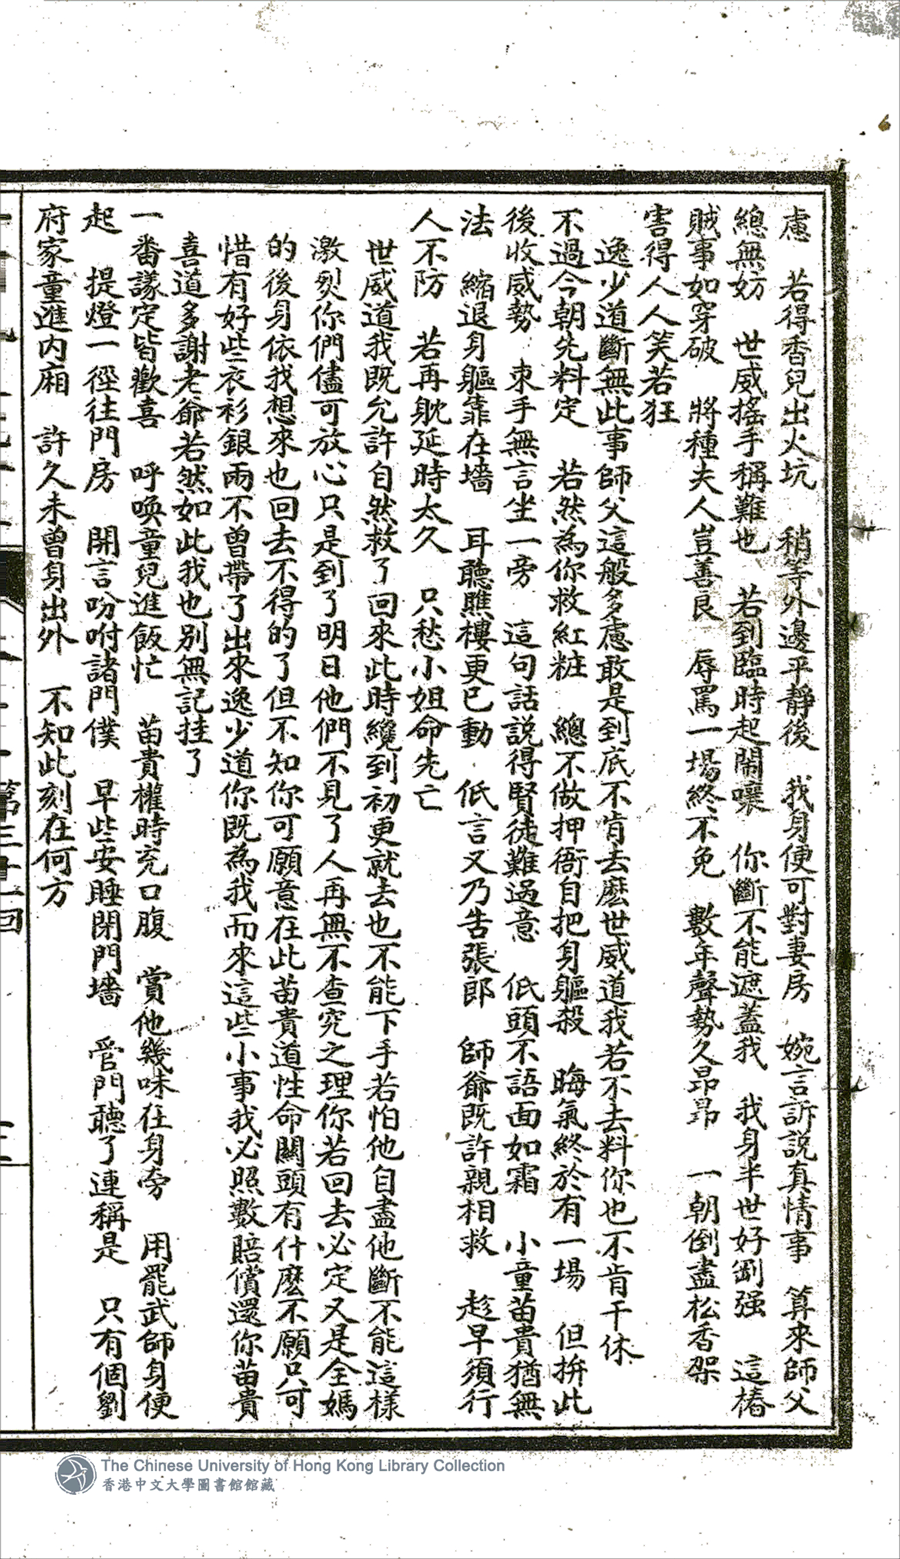 慮　若得香兒出火坑　稍等外邊平靜後　我身便可對妻房　婉言訴説真情事　算來師父
總無妨　世威搖手稱難也　若到臨時起鬧嚷　你斷不能遮蓋我　我身半世好剛强　這樁
賊事如穿破　將種夫人豈善良　辱罵一場終不免　數年聲勢久昂昂　一朝倒盡松香架
害得人人笑若狂
逸少道斷無此事師父這般多慮敢是到底不肯去麽世威道我若不去料你也不肯干休
不過今朝先料定　若然為你救紅粧　總不做押衙自把身軀殺　晦氣終於有一場　但拚此
後收威勢　束手無言坐一旁　這句話説得賢徒難過意　低頭不語面如霜　小童苗貴猶無
法　縮退身軀靠在墻　耳聽譙樓更已動　低言又乃告張郎　師爺既許親相救　趁早須行
人不防　若再躭延時太久　只愁小姐命先亡
世威道我既允許自然救了回來此時纔到初更就去也不能下手若怕他自盡他斷不能這樣
激烈你們儘可放心只是到了明日他們不見了人再無不查究之理你若回去必定又是全媽
的後身依我想來也回去不得的了但不知你可願意在此苗貴道性命關頭有什麽不願只可
惜有好些衣衫銀兩不曾帶了出來逸少道你既為我而來這些小事我必照數賠償還你苗貴
喜道多謝老爺若然如此我也別無記挂了
一番議定皆歡喜　呼喚童兒進飯忙　苗貴權時充口腹　賞他幾味在身旁　用罷武師身便
起　提燈一徑往門房　開言吩咐諸門僕　早些安睡閉門墻　管門聽了連稱是　只有個劉
府家童進內廂　許久未曾身出外　不知此刻在何方
第三十一回
The Chinese University of Hong Kong Library Collection
香港中文大學圖書館館藏